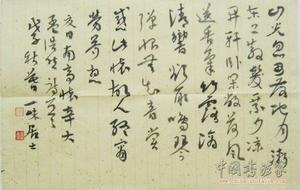 山光忽西落池月漸
東上散髮乘夕涼
開軒臥閑敞荷風
送香氣竹露滴
清響欲取鳴琴
彈恨無知音賞
感此懷故人終宵
勞夢想
夏日南亭懷辛大
孟浩然詩
戊子秋 一味居士